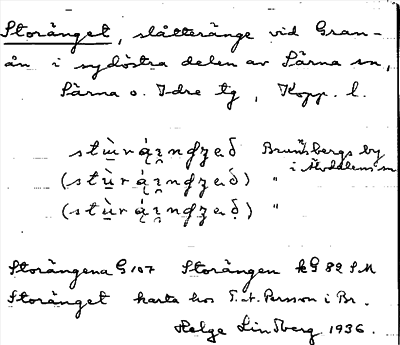 Storänget, slåtteränge vid Gran-
ån i sydöstra delen av Särna sn,
Särna o. Idre tg, Kopp. l.
Brunnsbergs by
i Älvdalens sn
"
"
Storängena G 107 Storängen kG 82 SM
Storänget karta hos T. A. Persson i Br.
Helge Lindberg 1936.